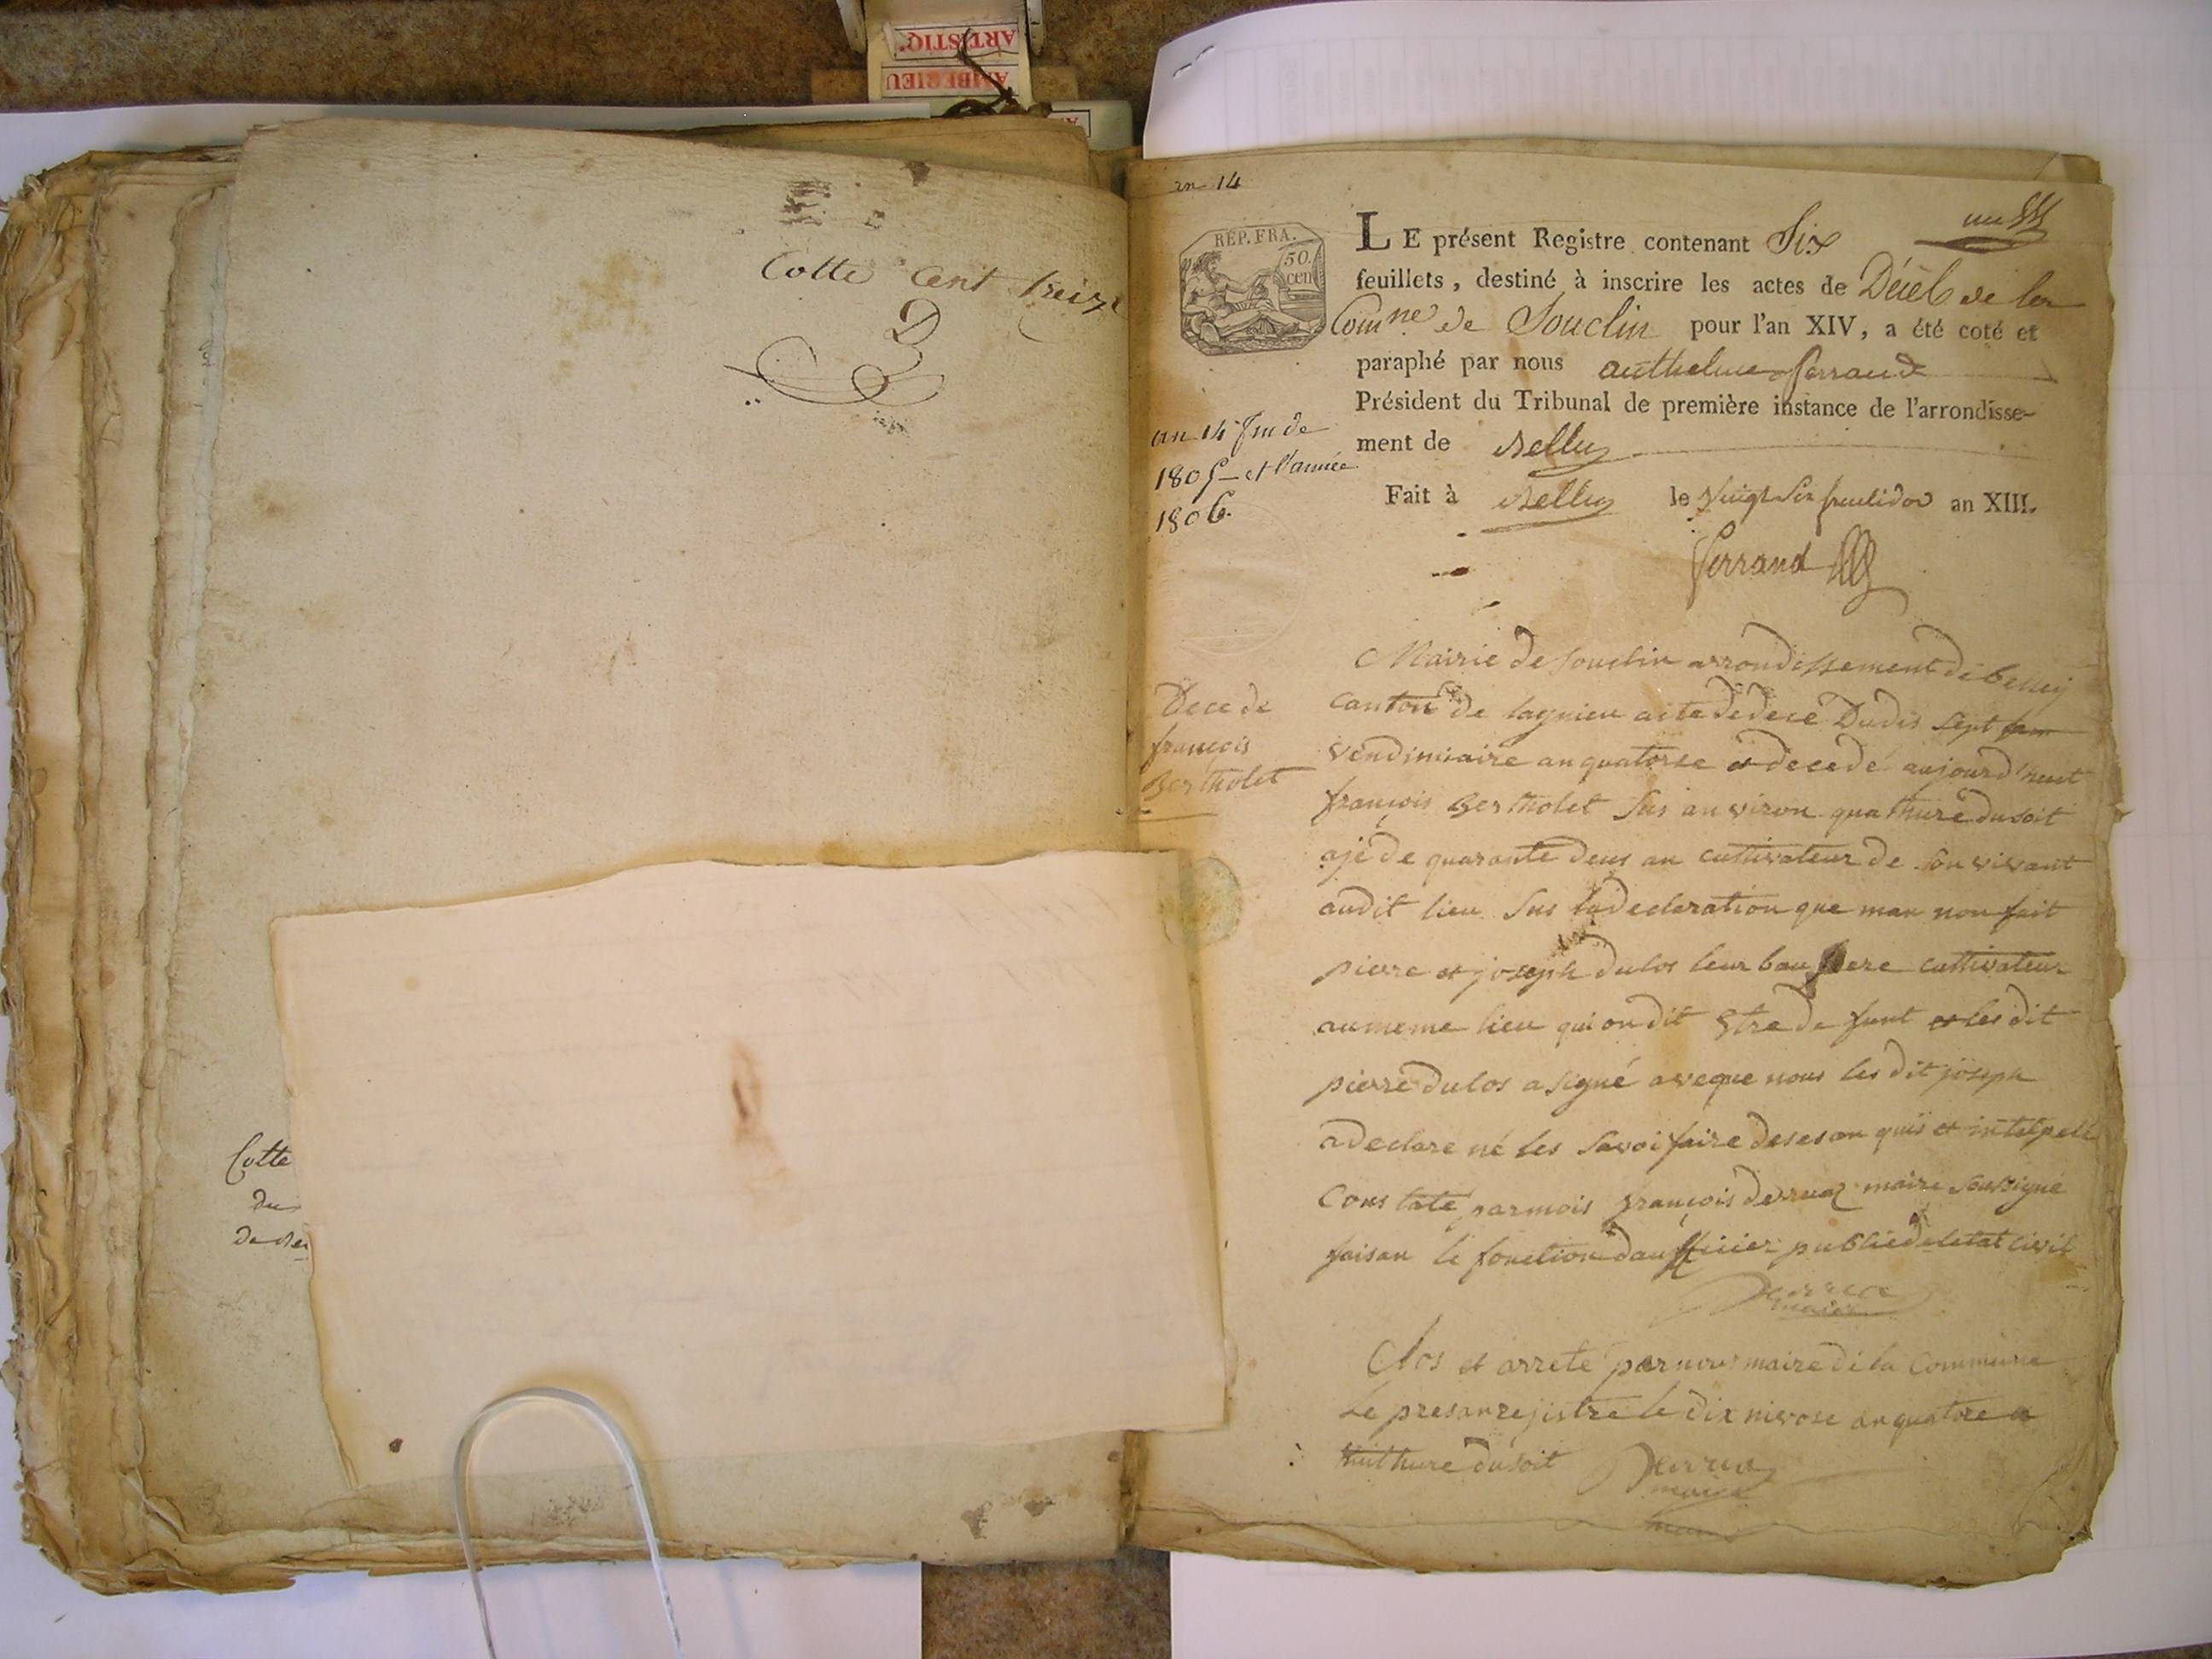 ARTISTIQ.
AMBERIEU
Cotte Cent treize
Cotte
du
an 14
REP. FRA.
50.
cent
LE présent Registre contenant Six
feuillets, destiné à inscrire les actes de Décès de la
Comne de Souclin pour l'an XIV, a été coté et
paraphé par nous anthelme ferrand
Président du Tribunal de première instance de l'arrondisse-
ment de Belley
Fait à Belley le Vingt Six fructidor an XIII.
ferrand
an 14 fin de
1805 et l'année
1806.
Dece de
françois
Bertholet
Mairie de Souclin arrondissement de belley
Canton de lagnieu acte de dece Du dis sept
vendimiaire an quatorse est decedé aujourd'huit
françois Bertholet Sus anviron quathure du soit
ajé de quarante deus an cultivateur de son vivant
audit lieu Sus la declaration que man non fait
pierre et joseph dulos leur bau frere cultivateur
au meme lieu qui on dit Etre de funt et les dit
pierre dulos a signé aveque nous les dit joseph
a declare né les savoi faire de ses an quis et intelpelé
Constate par mois françois derruaz maire Soussigné
faisan le fonction dau fficier public de letat civil
Derruaz
maire
Clos et arreté par nous maire de la Commune
Le presan rejistre le dix nivose an quatore a
huit hure du soit Derruaz
maire